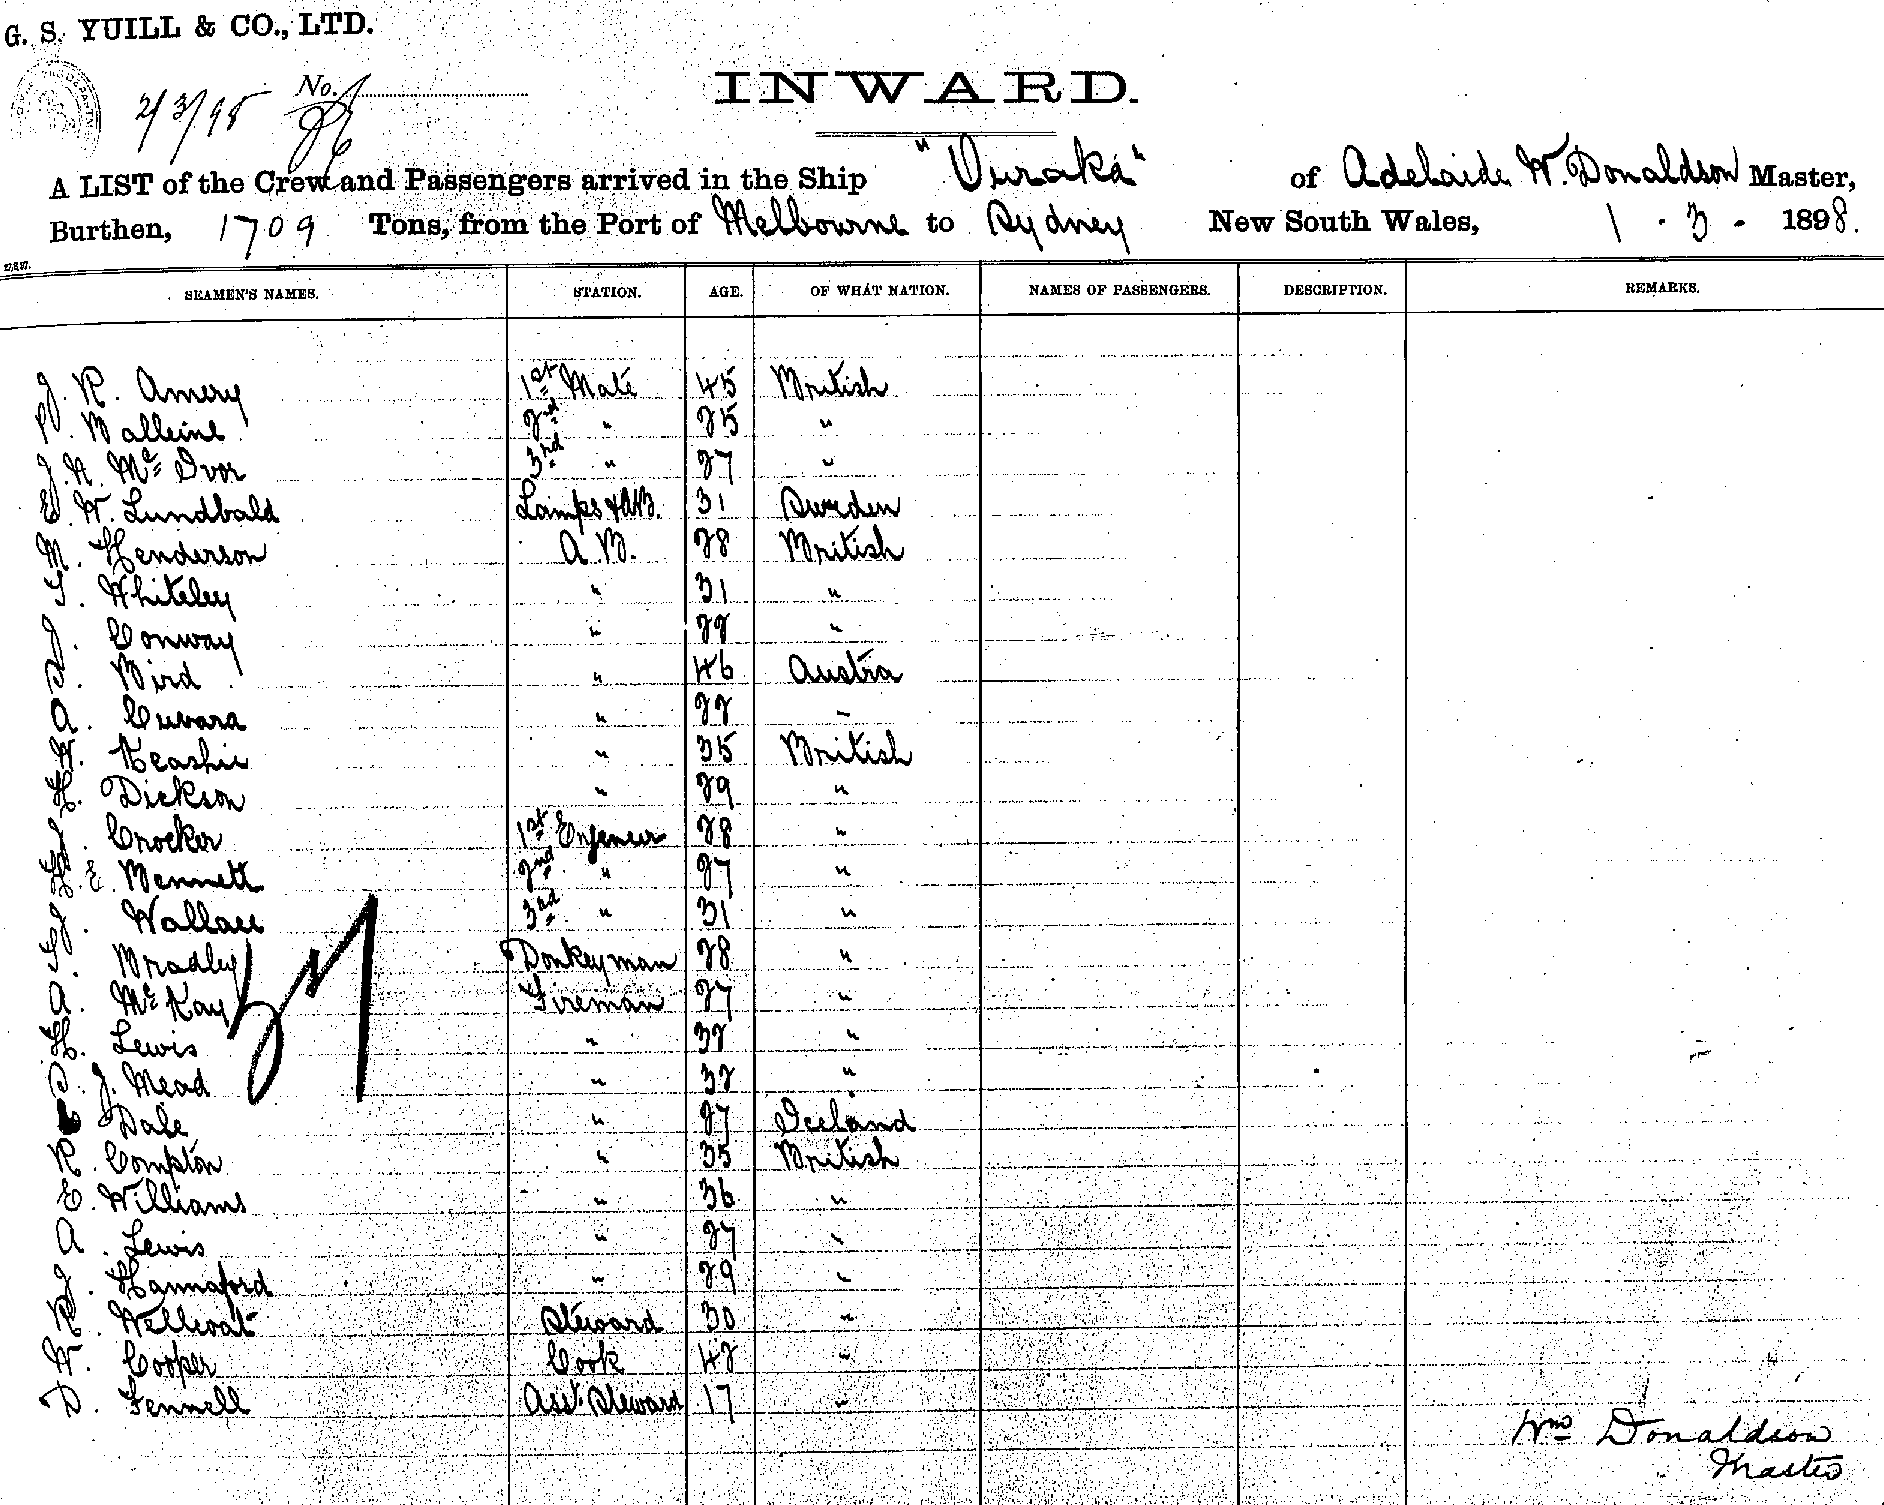 G. S. YUILL & CO., LTD.
2/3/98 No.
INWARD.
A LIST of the Crew and Passengers arrived in the Ship "Ouraka" of Adelaide W. Donaldson Master,
Burthen, 1709 Tons, from the Port of Melbourne to Sydney New South Wales, 1 . 3 - 1898.
SEAMEN'S NAMES. STATION. AGE. OF WHAT NATION. NAMES OF PASSENGERS. DESCRIPTION. REMARKS.
J. R. Amery 1st Mate 45 British
P. Balleine 2nd " 25 "
J. N. Mc Ivor 3rd " 27 "
E. W. Lundbald Lamps & AB. 31 Sweden
M. Henderson A. B. 28 British
T. Whiteley " 31 "
J. Conway " 22 "
S. Bird " 46 Austra
A. Cuvara " 22 "
W. Keashie " 35 British
H. Dickson " 29 "
J. Crocker 1st Engeneer 28 "
H. E. Bennett 2nd " 27 "
J. Wallace 3rd " 31 "
Bradley Donkeyman 28 "
A. Mc Kay Fireman 27 "
H. Lewis " 32 "
S. J. Mead " 32 "
Dale " 27 Iceland
R. Compton " 35 British
E. Williams " 36 "
A. Lewis " 27 "
J. Hannaford " 29 "
R. Steward 30 "
W. Cooper Cook 42 "
D. Fennell Asst. Steward 17 "
Wm Donaldson
Master